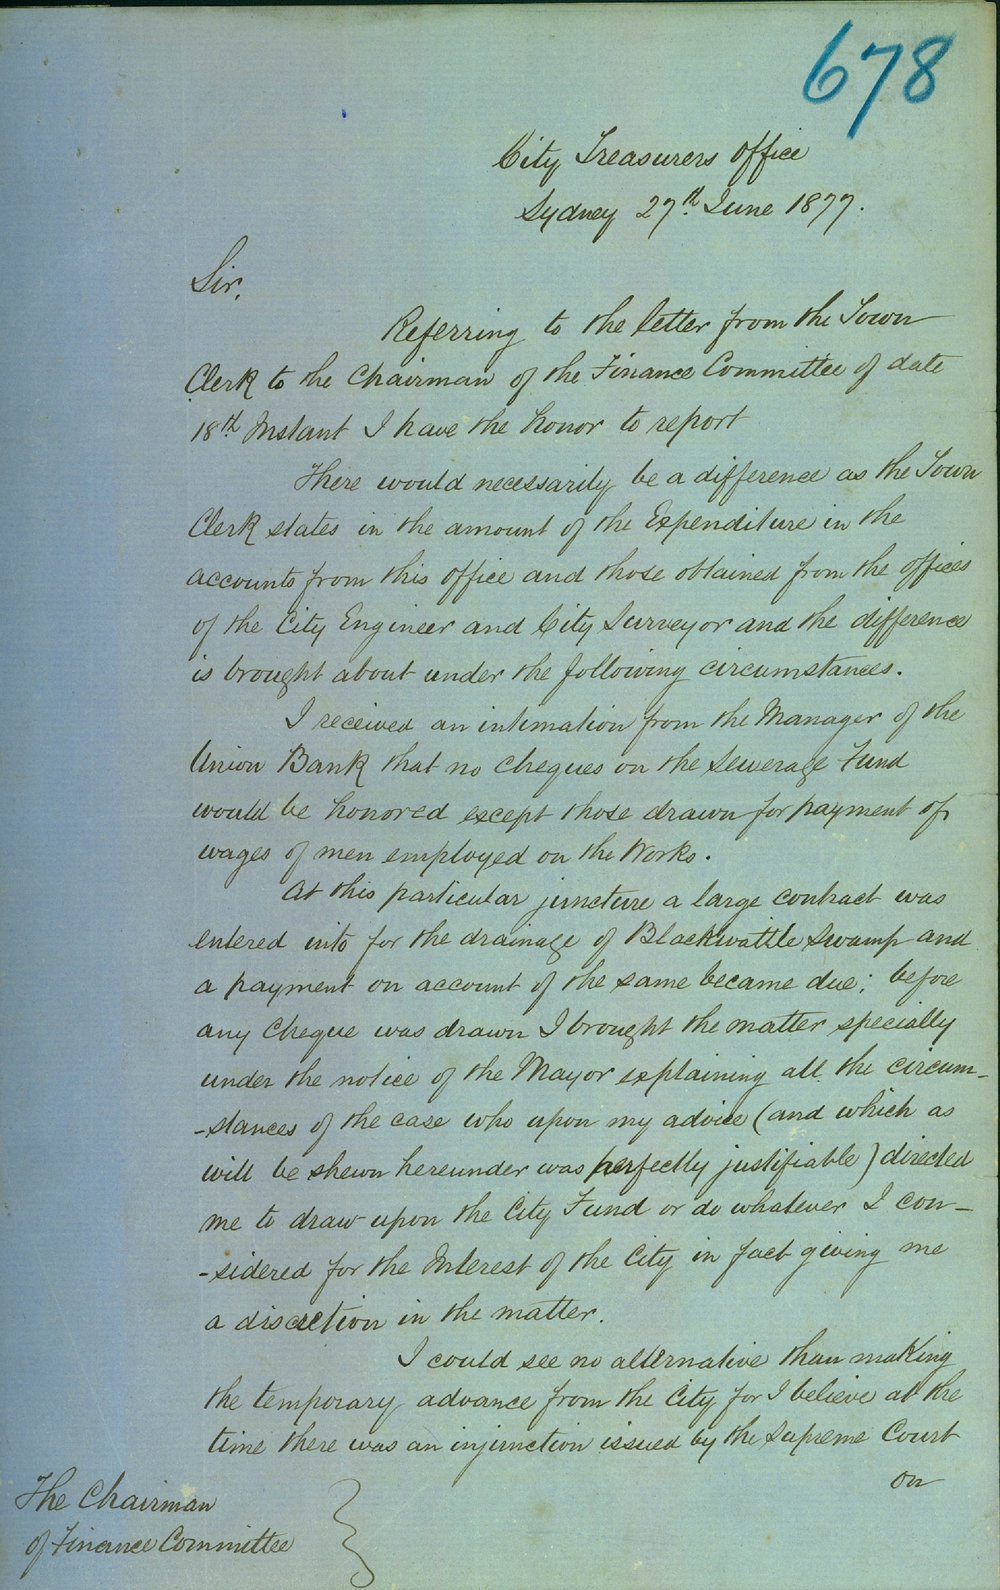 678
City Treasurers Office
Sydney 27th June 1877.
Sir,
Referring to the letter from the Town
Clerk to the Chairman of the Finance Committee of date
18th Instant I have the honor to report
There would necessarily be a difference as the Town
Clerk states in the amount of the Expenditure in the
accounts from this office and those obtained from the offices
of the City Engineer and City Surveyor and the difference
is brought about under the following circumstances.
I received an intimation from the Manager of the
Union Bank that no cheques on the Sewerage Fund
would be honored except those drawn for payment of
wages of men employed on the Works.
At this particular juncture a large contract was
entered into for the drainage of Blackwattle Swamp and
a payment on account of the same became due; before
any Cheque was drawn I brought the matter specially
under the notice of the Mayor explaining all the circum-
-stances of the case who upon my advice (and which as
will be shewn hereunder was perfectly justifiable) directed
me to draw upon the City Fund or do whatever I con-
-sidered for the Interest of the City in fact giving me
a discretion in the matter.
I could see no alternative than making
the temporary advance from the City for I believe at the
time there was an injunction issued by the Supreme Court
on
The Chairman
of Finance Committee